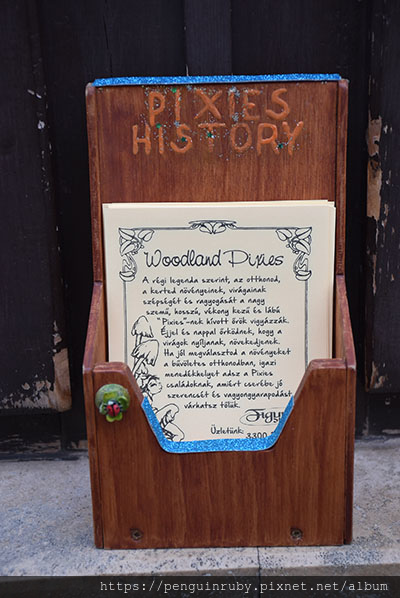 PIXIES
HISTORY
Woodland Pixies
A régi legenda szerint, az otthonod,
a kerted növényeinek, virágainak
szépségét és ragyogását a nagy
szemű, hosszú, vékony kezű és lábú
"Pixies"-nek hívott őrök vigyázzák.
Éjjel és nappal őrködnek, hogy a
virágok nyíljanak, növekedjenek.
Ha jól megválasztod a növényeket
a bűvöletes otthonodban, igazi
menedékhelyet adsz a Pixies
családoknak, amiért cserébe jó
szerencsét és vagyongyarapodást
várhatsz tőlük.
Üzletünk:
3300
https://penguinruby.pixnet.net/album